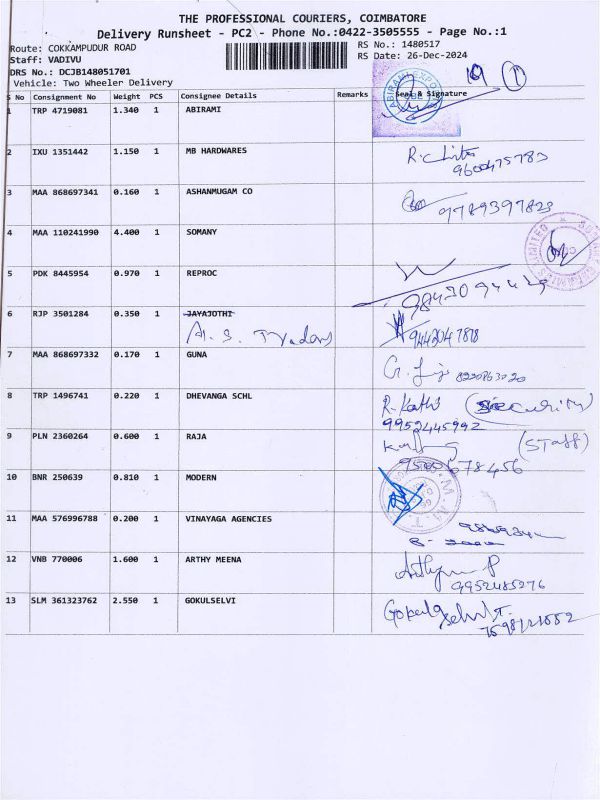 THE PROFESSIONAL COURIERS, COIMBATORE
Delivery Runsheet - PC2 - Phone No.:0422-3505555 - Page No.:1
Route: COKKAMPUDUR ROAD RS No.: 1480517
Staff: VADIVU RS Date: 26-Dec-2024
DRS No.: DCJB148051701
Vehicle: Two Wheeler Delivery
S No Consignment No Weight PCS Consignee Details Remarks Seal & Signature
1 TRP 4719081 1.340 1 ABIRAMI
2 IXU 1351442 1.150 1 MB HARDWARES
9600475783
3 MAA 868697341 0.160 1 ASHANMUGAM CO 9789397823
4 MAA 110241990 4.400 1 SOMANY
5 PDK 8445954 0.970 1 REPROC
6 RJP 3501284 0.350 1 JAYAJOTHI
A. S. Traders 9442047878
7 MAA 868697332 0.170 1 GUNA
8 TRP 1496741 0.220 1 DHEVANGA SCHL R. Kathi (Security)
9952445992
9 PLN 2360264 0.600 1 RAJA (Staff)
10 BNR 250639 0.810 1 MODERN
11 MAA 576996788 0.200 1 VINAYAGA AGENCIES
12 VNB 770006 1.600 1 ARTHY MEENA
9952485276
13 SLM 361323762 2.550 1 GOKULSELVI